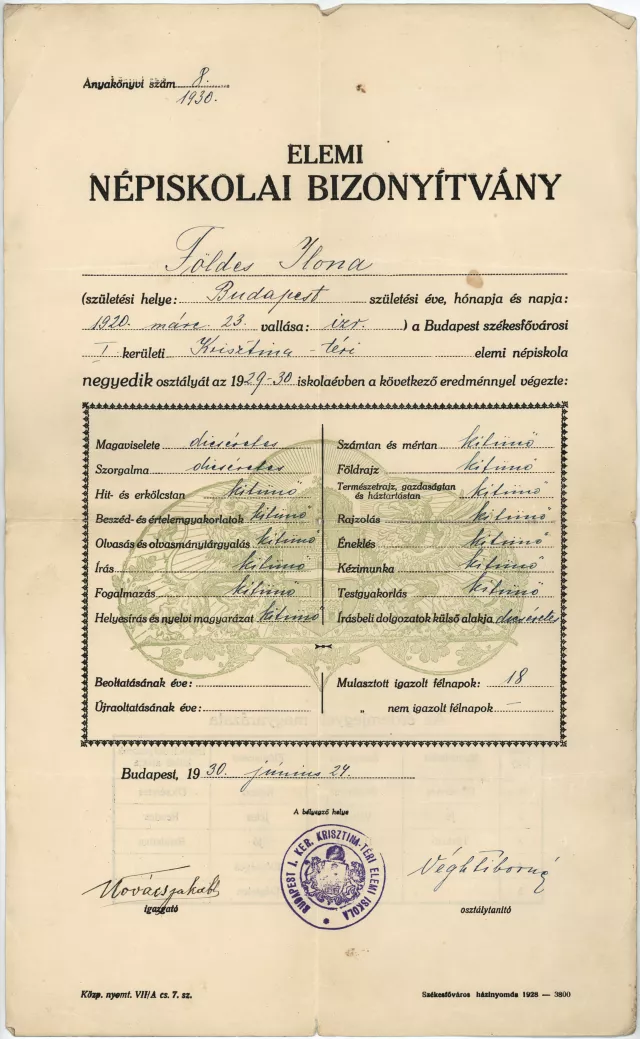 Anyakönyvi szám 8.
1930.
ELEMI
NÉPISKOLAI BIZONYÍTVÁNY
Földes Ilona
(születési helye: Budapest születési éve, hónapja és napja:
1920. márc. 23. vallása: izr. ) a Budapest székesfővárosi
I kerületi Krisztina-téri elemi népiskola
negyedik osztályát az 1929-30 iskolaévben a következő eredménnyel végezte:
Magaviselete dicséretes
Szorgalma dicséretes
Hit- és erkölcstan kitünő
Beszéd- és értelemgyakorlatok kitünő
Olvasás és olvasmánytárgyalás kitünő
Írás kitünő
Fogalmazás kitünő
Helyesírás és nyelvi magyarázat kitünő
Számtan és mértan kitünő
Földrajz kitünő
Természetrajz, gazdaságtan
és háztartástan kitünő
Rajzolás kitünő
Éneklés kitünő
Kézimunka kitünő
Testgyakorlás kitünő
Írásbeli dolgozatok külső alakja dicséretes
Beoltatásának éve:
Újraoltatásának éve:
Mulasztott igazolt félnapok: 18
„ nem igazolt félnapok —
Budapest, 1930. június 24.
A bélyegző helye
BUDAPEST I. KER. KRISZTINA-TÉRI ELEMI ISKOLA
Kovács Jakab
igazgató
Végh Tiborné
osztálytanító
Közp. nyomt. VII/A cs. 7. sz.
Székesfőváros házinyomda 1928 — 3800